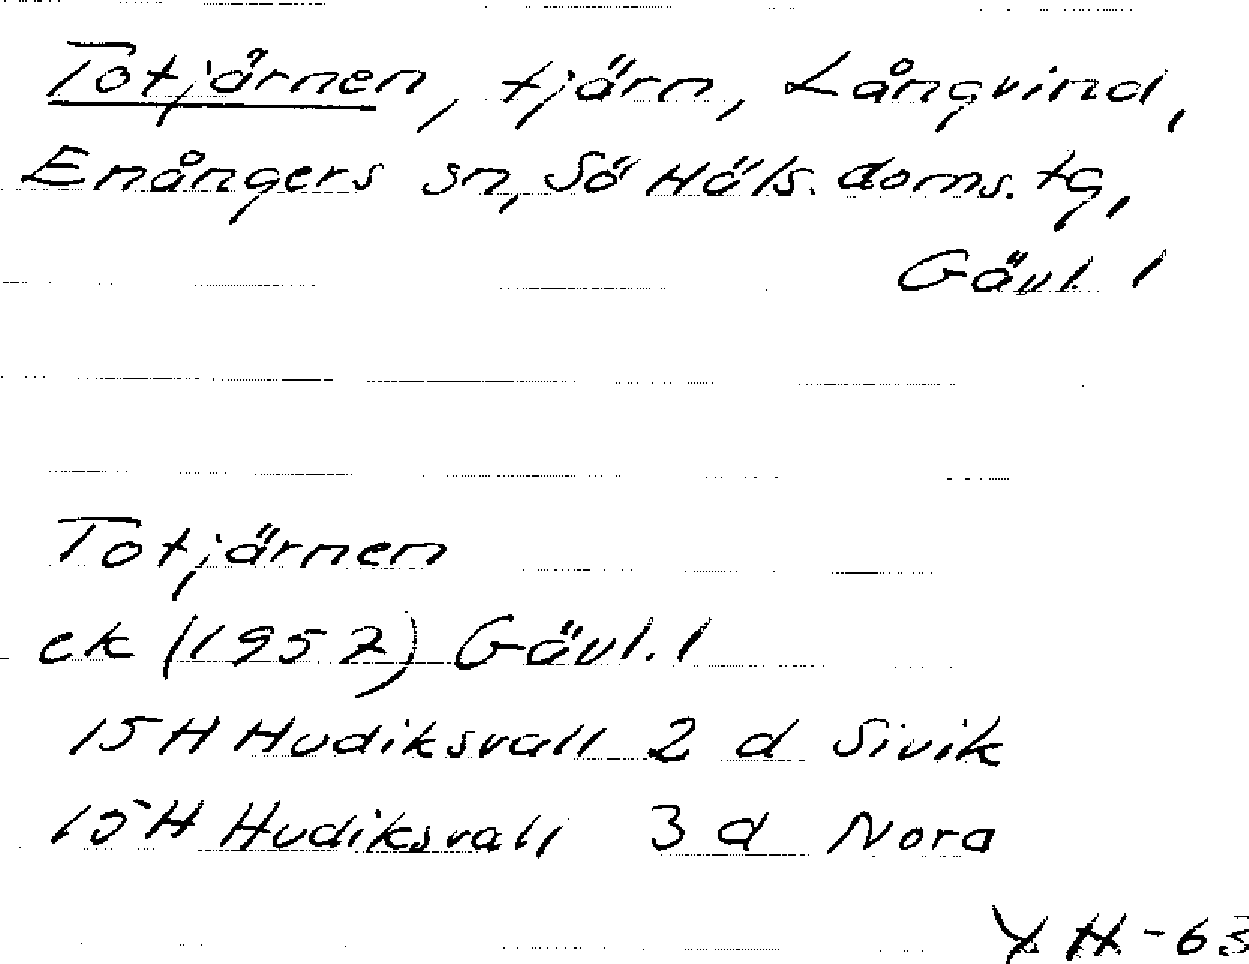 Totjärnen, tjärn, Långvind,
Enångers sn, Sö Häls. doms. tg,
Gävl. l
Totjärnen
ek (1952) Gävl. l
15 H Hudiksvall 2 d Sivik
15 H Hudiksvall 3 d Nora
YH-63